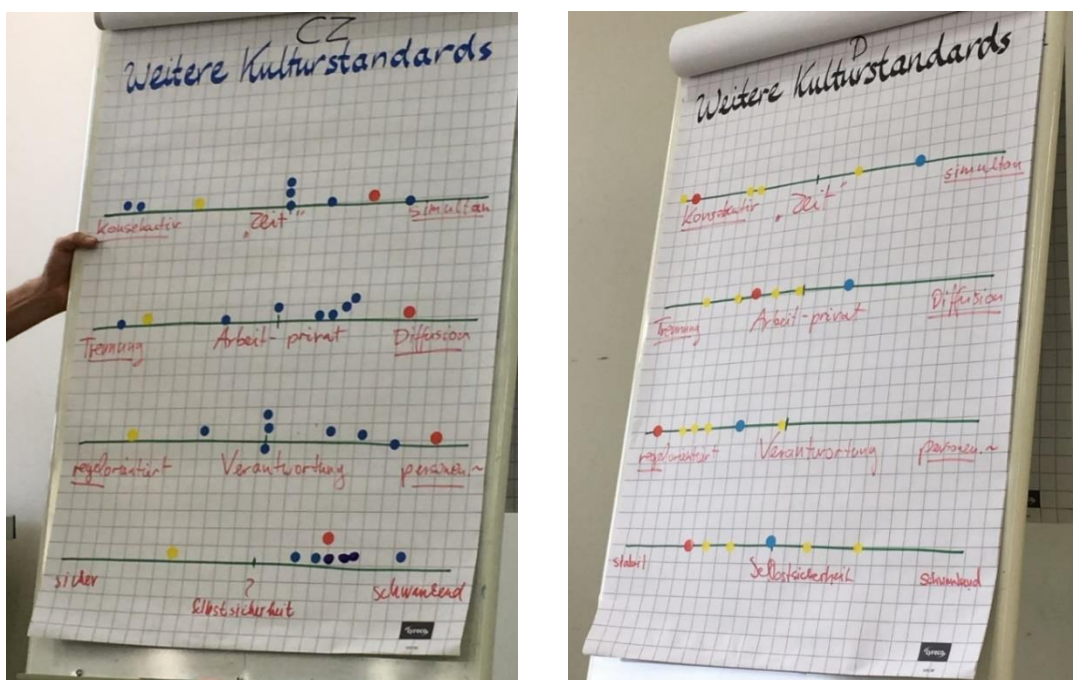 CZ
Weitere Kulturstandards
Konsekutiv „Zeit“ simultan
Trennung Arbeit - privat Diffusion
regelorientiert Verantwortung personen.~
sicher ? schwankend
Selbstsicherheit
D
Weitere Kulturstandards
Konsekutiv „Zeit“ simultan
Trennung Arbeit - privat Diffusion
regelorientiert Verantwortung personen.~
stabil Selbstsicherheit schwankend